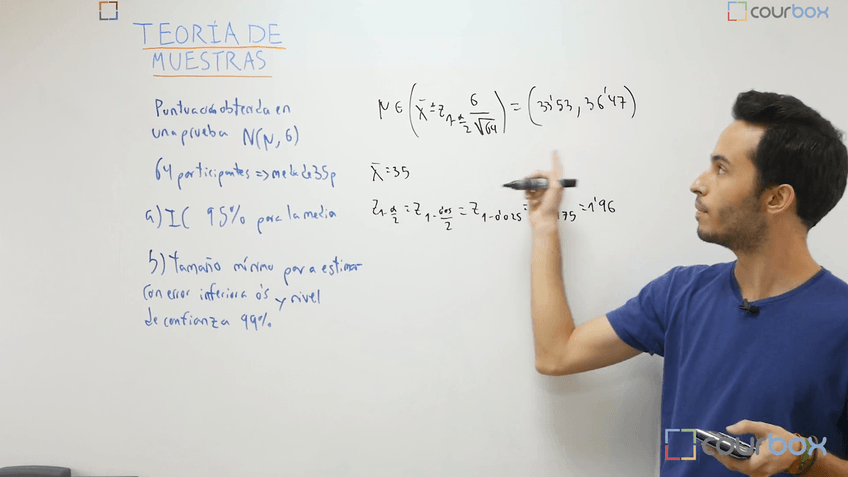 courbox
TEORÍA DE
MUESTRAS
Puntuación obtenida en
una prueba N(μ, 6)
64 participantes => media de 35p
a) IC 95% para la media
b) Tamaño mínimo para estimar
con error inferior a 0'5 y nivel
de confianza 99%
μ ∈ (x̄ ± z₁₋α/₂ 6/√64) = (33'53, 36'47)
x̄ = 35
z₁₋α/₂ = z₁₋0'05/₂ = z₁₋0'025 = 75 = 1'96
courbox